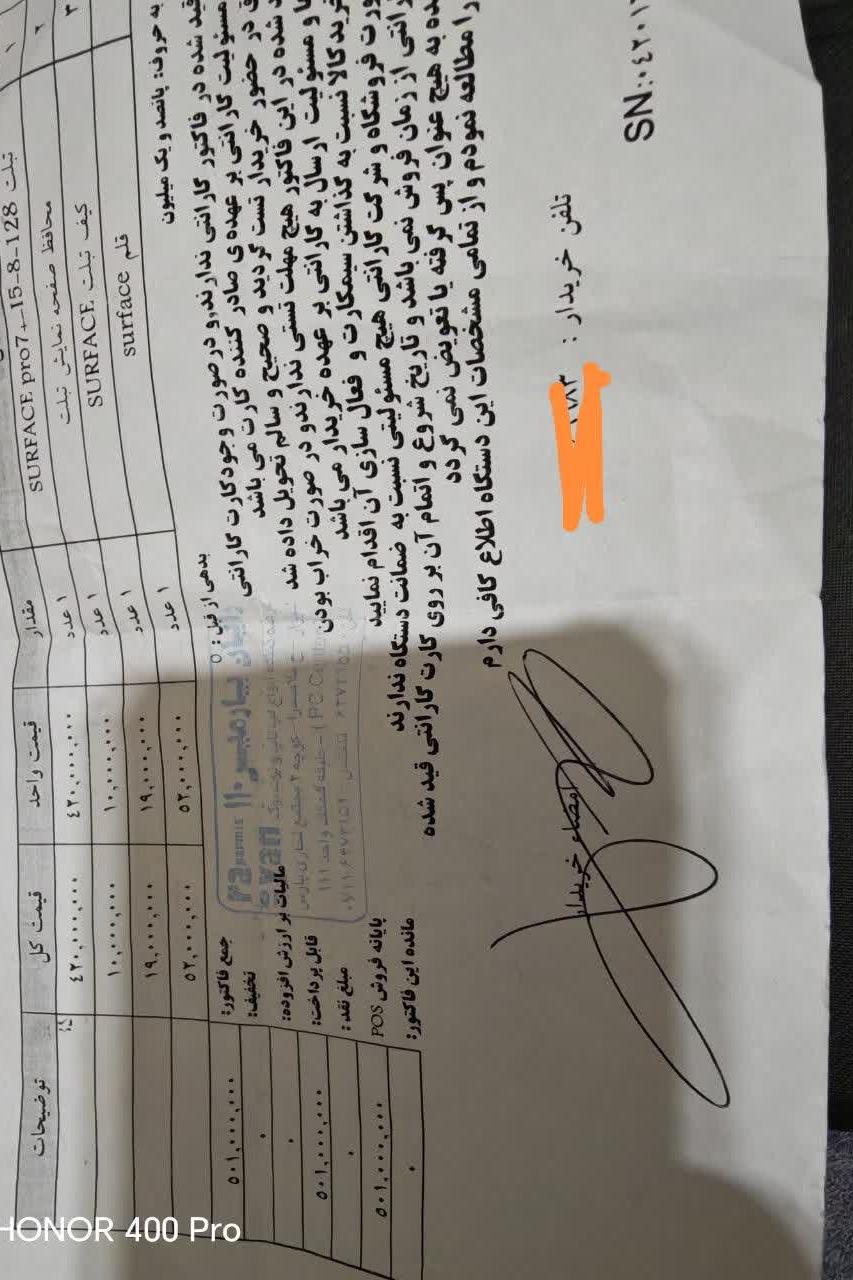 مقدار قیمت واحد قیمت کل توضیحات
۱ تبلت SURFACE pro7+_15-8-128 ۱ عدد ۴۲۰,۰۰۰,۰۰۰ ۴۲۰,۰۰۰,۰۰۰
۲ محافظ صفحه نمایش تبلت ۱ عدد ۱۰,۰۰۰,۰۰۰ ۱۰,۰۰۰,۰۰۰
۳ کیف تبلت SURFACE ۱ عدد ۱۹,۰۰۰,۰۰۰ ۱۹,۰۰۰,۰۰۰
قلم surface ۱ عدد ۵۲,۰۰۰,۰۰۰ ۵۲,۰۰۰,۰۰۰
به حروف: پانصد و یک میلیون
بدهی از قبل : ۰
جمع فاکتور: ۵۰۱,۰۰۰,۰۰۰
تخفیف: ۰
مالیات بر ارزش افزوده: ۰
قابل پرداخت: ۵۰۱,۰۰۰,۰۰۰
مبلغ نقد : ۰
پایانه فروش POS ۵۰۱,۰۰۰,۰۰۰
مانده این فاکتور: ۰
قید شده در فاکتور گارانتی ندارند,و درصورت وجود کارت گارانتی
مسئولیت گارانتی بر عهده ی صادر کننده کارت می باشد
در حضور خریدار تست گردید و صحیح و سالم تحویل داده شد
شده در این فاکتور هیچ مهلت تستی ندارندو در صورت خراب بودن
و مسئولیت ارسال به گارانتی بر عهده خریدار می باشد
خرید کالا نسبت به گذاشتن سیمکارت و فعال سازی آن اقدام نمایید
فروشگاه و شرکت گارانتی هیچ مسئولیتی نسبت به ضمانت دستگاه ندارند
از زمان فروش نمی باشد و تاریخ شروع و اتمام آن بر روی کارت گارانتی قید شده
به هیچ عنوان پس گرفته یا تعویض نمی گردد
را مطالعه نمودم و از تمامی مشخصات این دستگاه اطلاع کافی دارم
تلفن خریدار :
امضاء خریدار
SN:
HONOR 400 Pro